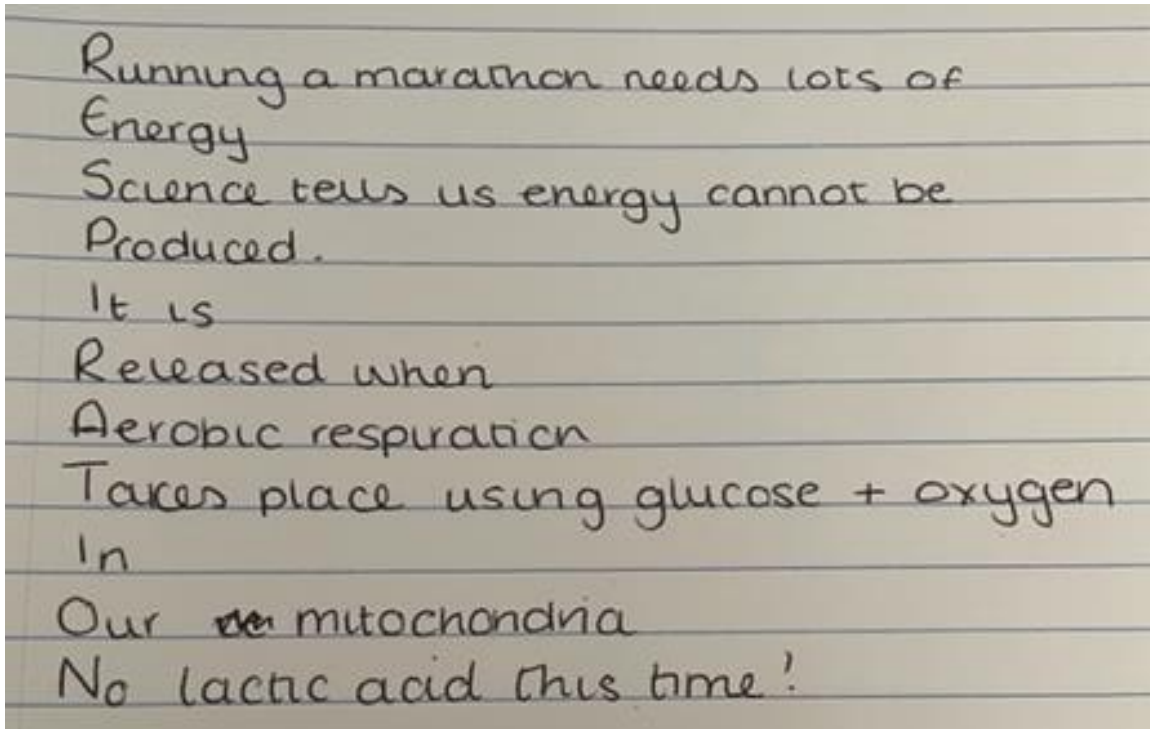 Running a marathon needs lots of
Energy
Science tells us energy cannot be
Produced.
It is
Released when
Aerobic respiration
Takes place using glucose + oxygen
In
Our mitochondria
No lactic acid this time!